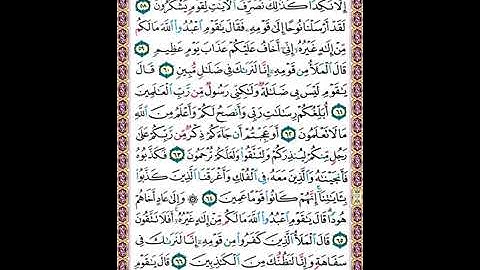 إِلَّا نَكِدًا كَذَٰلِكَ نُصَرِّفُ الْآيَاتِ لِقَوْمٍ يَشْكُرُونَ ٥٨
لَقَدْ أَرْسَلْنَا نُوحًا إِلَىٰ قَوْمِهِ فَقَالَ يَٰقَوْمِ اعْبُدُوا اللَّهَ مَا لَكُم
مِّنْ إِلَٰهٍ غَيْرُهُ إِنِّي أَخَافُ عَلَيْكُمْ عَذَابَ يَوْمٍ عَظِيمٍ ٥٩
قَالَ الْمَلَأُ مِن قَوْمِهِ إِنَّا لَنَرَىٰكَ فِي ضَلَٰلٍ مُّبِينٍ ٦٠ قَالَ
يَٰقَوْمِ لَيْسَ بِي ضَلَٰلَةٌ وَلَٰكِنِّي رَسُولٌ مِّن رَّبِّ الْعَٰلَمِينَ
٦١ أُبَلِّغُكُمْ رِسَٰلَٰتِ رَبِّي وَأَنصَحُ لَكُمْ وَأَعْلَمُ مِنَ اللَّهِ
مَا لَا تَعْلَمُونَ ٦٢ أَوَعَجِبْتُمْ أَن جَاءَكُمْ ذِكْرٌ مِّن رَّبِّكُمْ عَلَىٰ
رَجُلٍ مِّنكُمْ لِيُنذِرَكُمْ وَلِتَتَّقُوا وَلَعَلَّكُمْ تُرْحَمُونَ ٦٣ فَكَذَّبُوهُ
فَأَنجَيْنَٰهُ وَالَّذِينَ مَعَهُ فِي الْفُلْكِ وَأَغْرَقْنَا الَّذِينَ كَذَّبُوا
بِـَٔايَٰتِنَا إِنَّهُمْ كَانُوا قَوْمًا عَمِينَ ٦٤ ۞ وَإِلَىٰ عَادٍ أَخَاهُمْ
هُودًا قَالَ يَٰقَوْمِ اعْبُدُوا اللَّهَ مَا لَكُم مِّنْ إِلَٰهٍ غَيْرُهُ أَفَلَا تَتَّقُونَ
٦٥ قَالَ الْمَلَأُ الَّذِينَ كَفَرُوا مِن قَوْمِهِ إِنَّا لَنَرَىٰكَ فِي
سَفَاهَةٍ وَإِنَّا لَنَظُنُّكَ مِنَ الْكَٰذِبِينَ ٦٦ قَالَ يَٰقَوْمِ